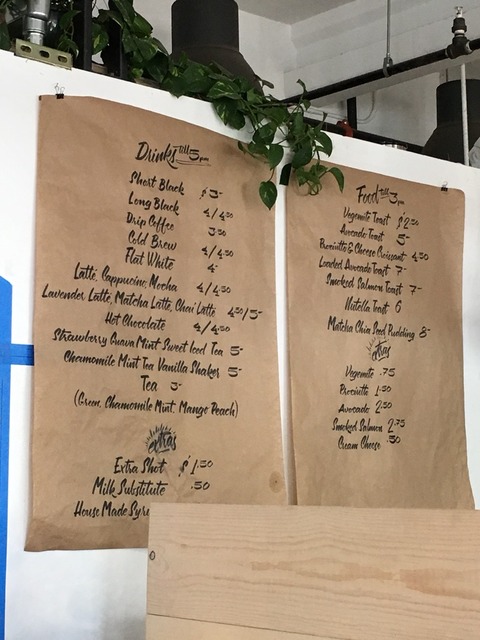 Drinks till 5pm
Short Black $3-
Long Black 4/4.50
Drip Coffee 3.50
Cold Brew 4/4.50
Flat White 4-
Latte, Cappucino, Mocha 4/4.50
Lavender Latte, Matcha Latte, Chai Latte 4.50/5-
Hot Chocolate 4/4.50
Strawberry Guava Mint Sweet Iced Tea 5-
Chamomile Mint Tea Vanilla Shaker 5-
Tea 3-
(Green, Chamomile Mint, Mango Peach)
extras
Extra Shot $1.50
Milk Substitute .50
House Made Syru
Food till 3pm
Vegemite Toast $2.50
Avocado Toast 5-
Prociutto & Cheese Croissant 4.50
Loaded Avocado Toast 7-
Smoked Salmon Toast 7-
Nutella Toast 6
Matcha Chia Seed Pudding 8-
extras
Vegemite .75
Prociutto 1.50
Avocado 2.50
Smoked Salmon 2.75
Cream Cheese .50